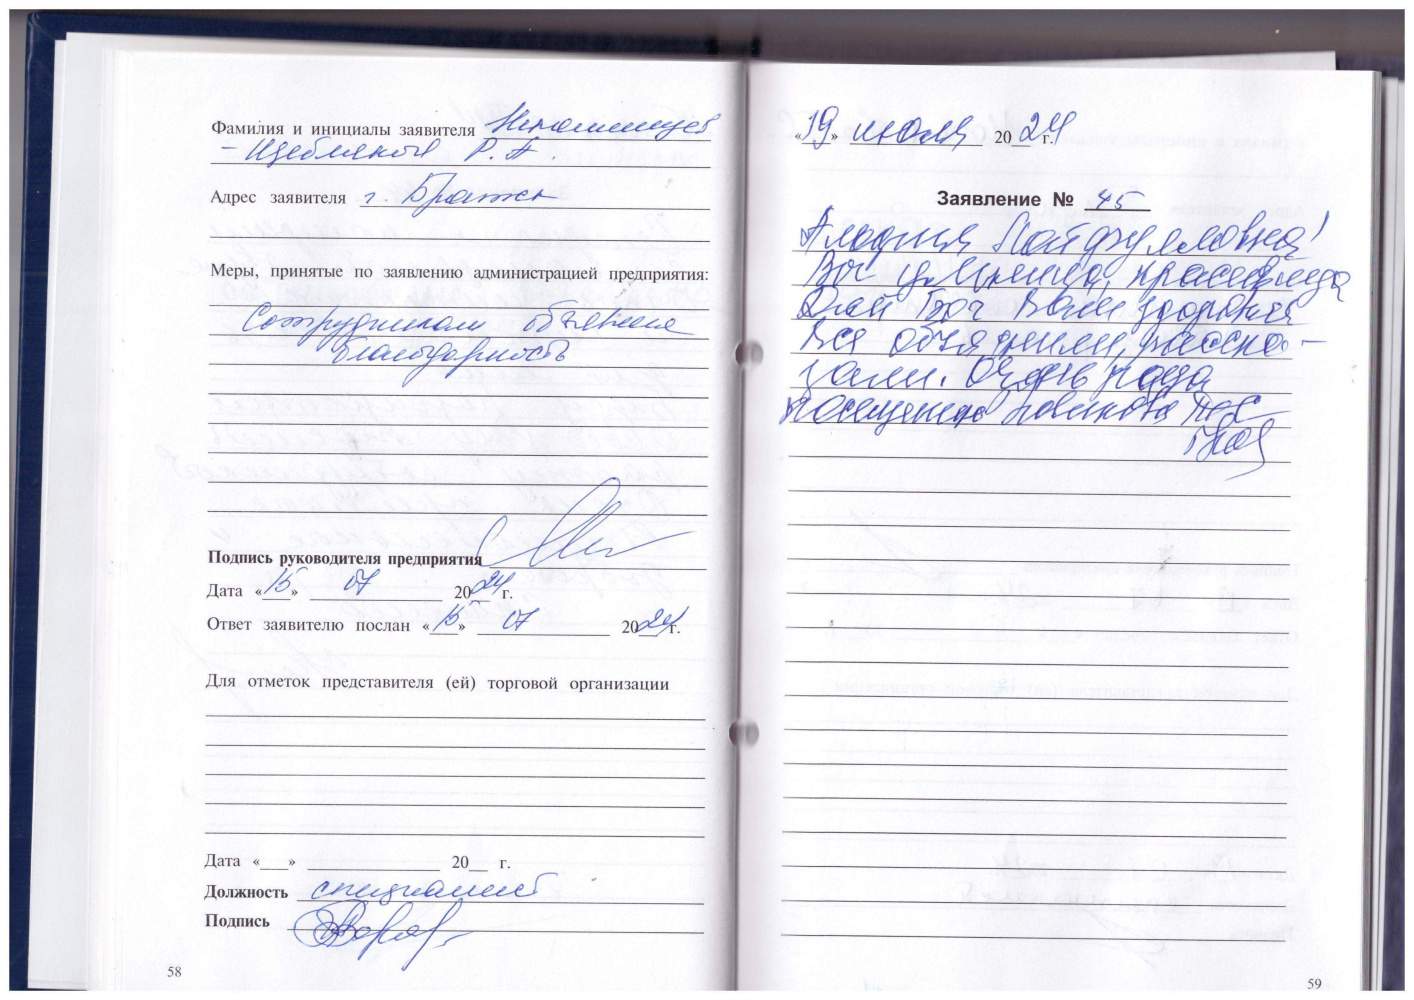 Фамилия и инициалы заявителя
Р. А.
Адрес заявителя г. Братск
Меры, принятые по заявлению администрацией предприятия:
Сотрудникам объявлена
благодарность
Подпись руководителя предприятия
Дата «15» 07 2024 г.
Ответ заявителю послан «15» 07 2024 г.
Для отметок представителя (ей) торговой организации
Дата «___» 20__ г.
Должность специалист
Подпись
58
«19» июля 2024 г.
Заявление № 45
Вы умница, красавица
Дай Бог Вам здоровья
Все объяснили, расска-
зали. Очень рада
посещению
59